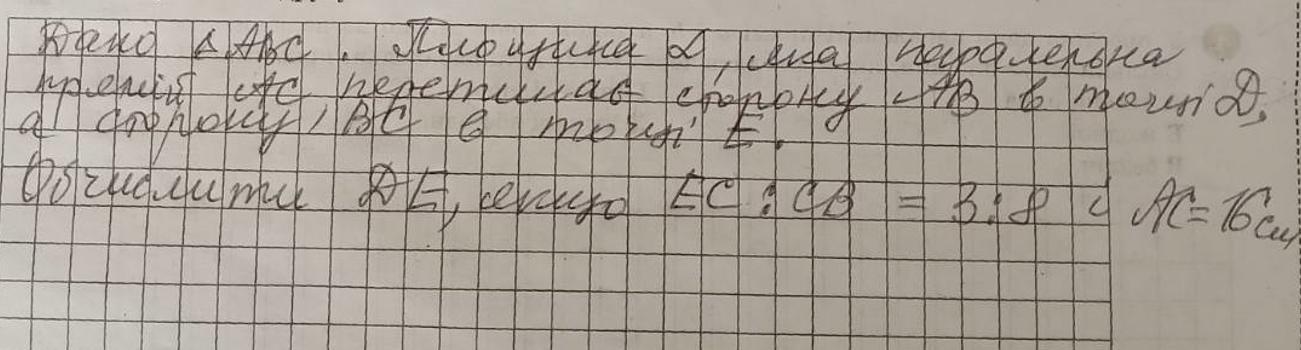 Дано △ ABC. Площина α, яка паралельна
прямій AC перетинає сторону AB в точці D,
а сторону BC в точці E.
Обчислити DE, якщо EC : CB = 3:8 і AC = 16 см